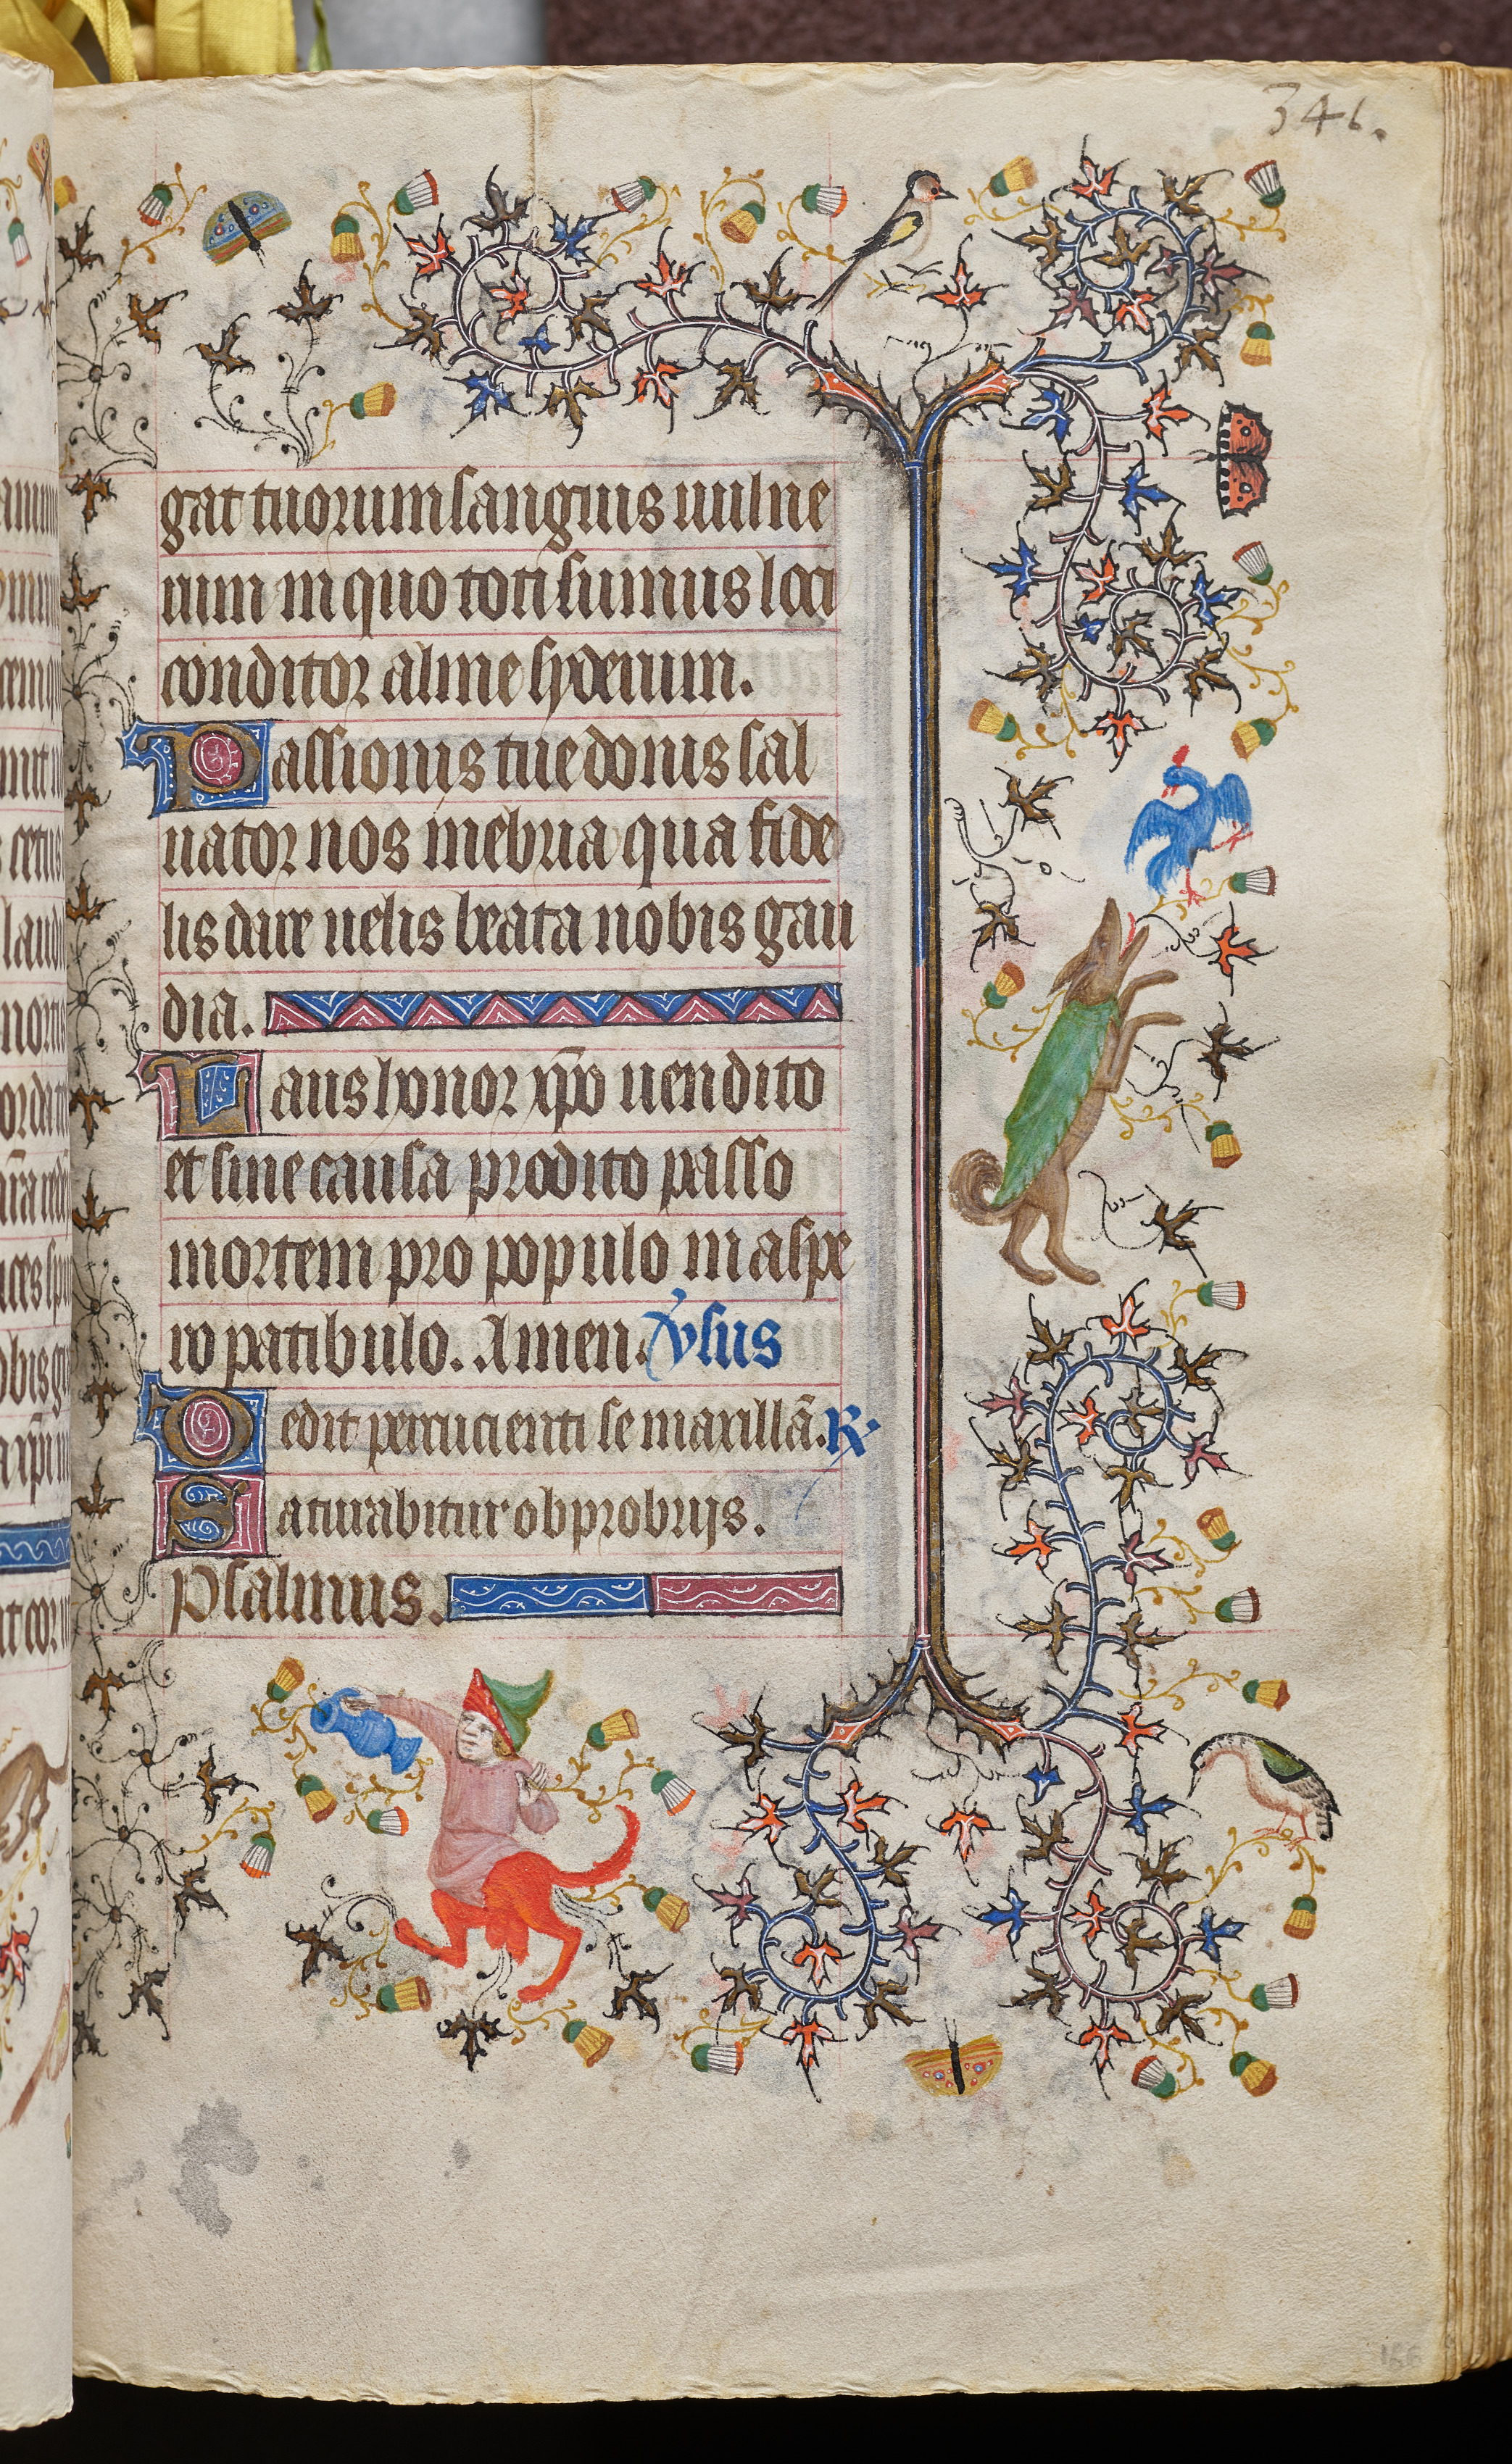 346.
gat tuorum sanguis uulne
rum in quo toti sumus loti
conditor alme syderum.
Passionis tue donis sal
uator nos inebria qua fide
lis dare uelis beata nobis gau
dia.
Laus honor xp̄o uendito
et sine causa prodito passo
mortem pro populo in aspe
ro patibulo. Amen. v̓sus
Dedit percucienti se maxillā. R.
Saturabitur obprobrijs.
Psalmus.